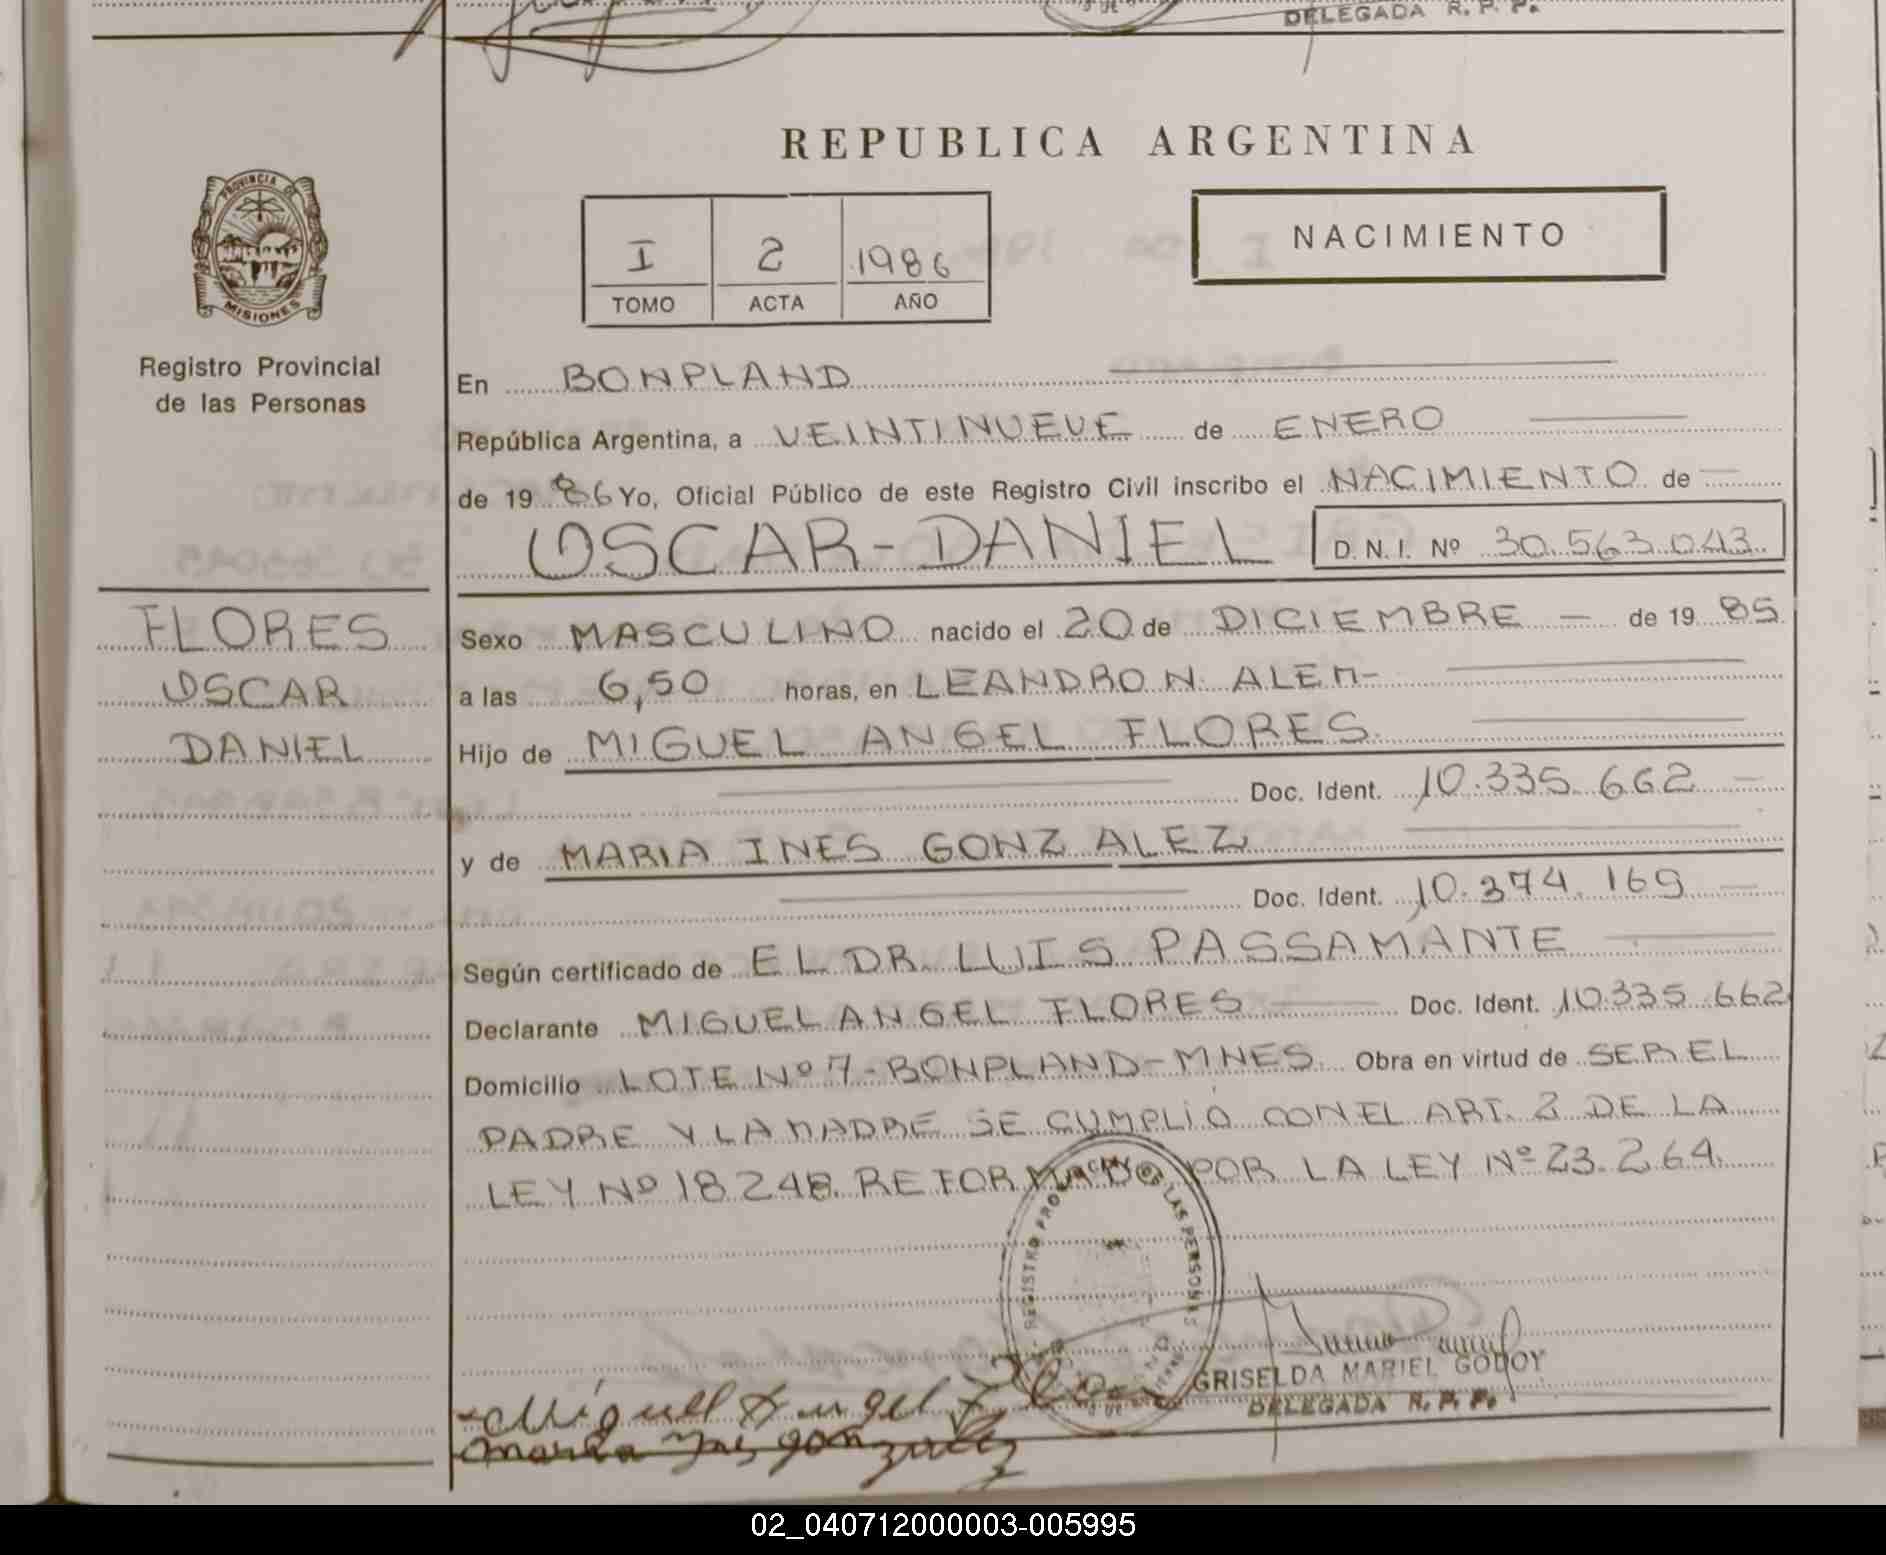 DELEGADA R. P. P.
REPUBLICA ARGENTINA
PROVINCIA DE
MISIONES
Registro Provincial
de las Personas
I 2 1986
TOMO ACTA AÑO
NACIMIENTO
En BONPLAND
República Argentina, a VEINTINUEVE de ENERO
de 19 86 Yo, Oficial Público de este Registro Civil inscribo el NACIMIENTO de
OSCAR-DANIEL D. N. I. Nº 30.563.043
FLORES
OSCAR
DANIEL
Sexo MASCULINO nacido el 20 de DICIEMBRE — de 19 85
a las 6,50 horas, en LEANDRO N. ALEM-
Hijo de MIGUEL ANGEL FLORES
Doc. Ident. 10.335.662
y de MARIA INES GONZALEZ
Doc. Ident. 10.374.169
Según certificado de EL DR. LUIS PASSAMANTE
Declarante MIGUEL ANGEL FLORES Doc. Ident. 10.335.662
Domicilio LOTE Nº 7-BONPLAND-MNES. Obra en virtud de SER EL
PADRE Y LA MADRE SE CUMPLIO CON EL ART. 2 DE LA
LEY Nº 18.248. REFORMADO POR LA LEY Nº 23.264.
REGISTRO PROVINCIAL DE LAS PERSONAS
GRISELDA MARIEL GODOY
DELEGADA R. P. P.
Miguel Angel Flores
Maria Ines gonzalez
02_040712000003-005995